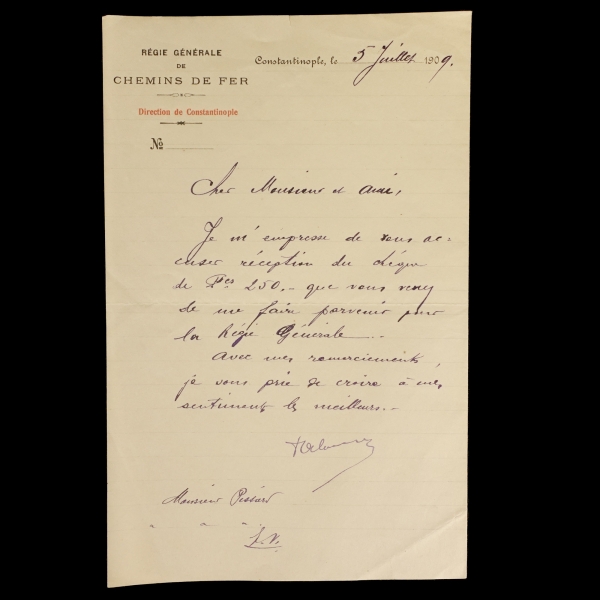 RÉGIE GÉNÉRALE
DE
CHEMINS DE FER
Direction de Constantinople
No
Constantinople, le 5 Juillet 1909.
Cher Monsieur et ami,
Je m'empresse de vous ac=
cuser réception du chèque
de Fcs 250.- que vous venez
de me faire parvenir pour
la Régie Générale.
Avec mes remerciements,
je vous prie de croire à mes
sentiments les meilleurs.-
Monsieur Pissard
" " "
E.V.